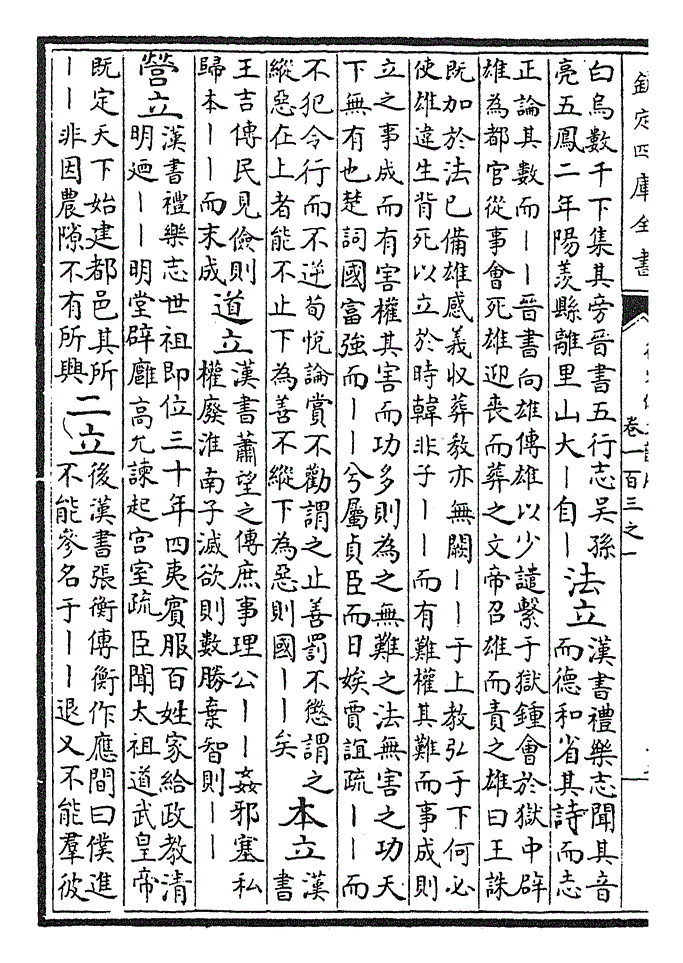 欽定四庫全書
卷一百三之一
白烏數千下集其旁晉書五行志吳孫
亮五鳳二年陽羨縣離里山大丨自丨
法立
漢書禮樂志聞其音
而德和省其詩而志
正論其數而丨丨晉書向雄傳雄以少譴繫于獄鍾會於獄中辟
雄為都官從事會死雄迎喪而葬之文帝召雄而責之雄曰王誅
既加於法已備雄感義收葬教亦無闕丨丨于上教弘于下何必
使雄違生背死以立於時韓非子丨丨而有難權其難而事成則
立之事成而有害權其害而功多則為之無難之法無害之功天
下無有也楚詞國富強而丨丨兮屬貞臣而日娭賈誼疏丨丨而
不犯令行而不逆荀悅論賞不勸謂之止善罰不懲謂之
縱惡在上者能不止下為善不縱下為惡則國丨丨矣
本立
漢
書
王吉傳民見儉則
歸本丨丨而末成
道立
漢書蕭望之傳庶事理公丨丨姦邪塞私
權廢淮南子滅欲則數勝棄智則丨丨
營立
漢書禮樂志世祖即位三十年四夷賓服百姓家給政教清
明廼丨丨明堂辟廱高允諫起宫室疏臣聞太祖道武皇帝
既定天下始建都邑其所
丨丨非因農隙不有所興
二立
後漢書張衡傳衡作應間曰僕進
不能參名于丨丨退又不能羣彼